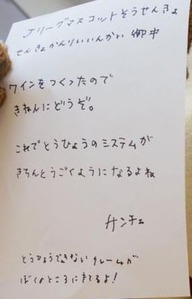 Jリーグマスコットそうせんきょ
せんきょかんりいいんかい 御中
ワインをつくったので
きねんにどうぞ。
これでとうひょうのシステムが
きちんとうごくようになるよね
サンチェ
とうひょうできないクレームが
ぼくのところにまできてるよ!